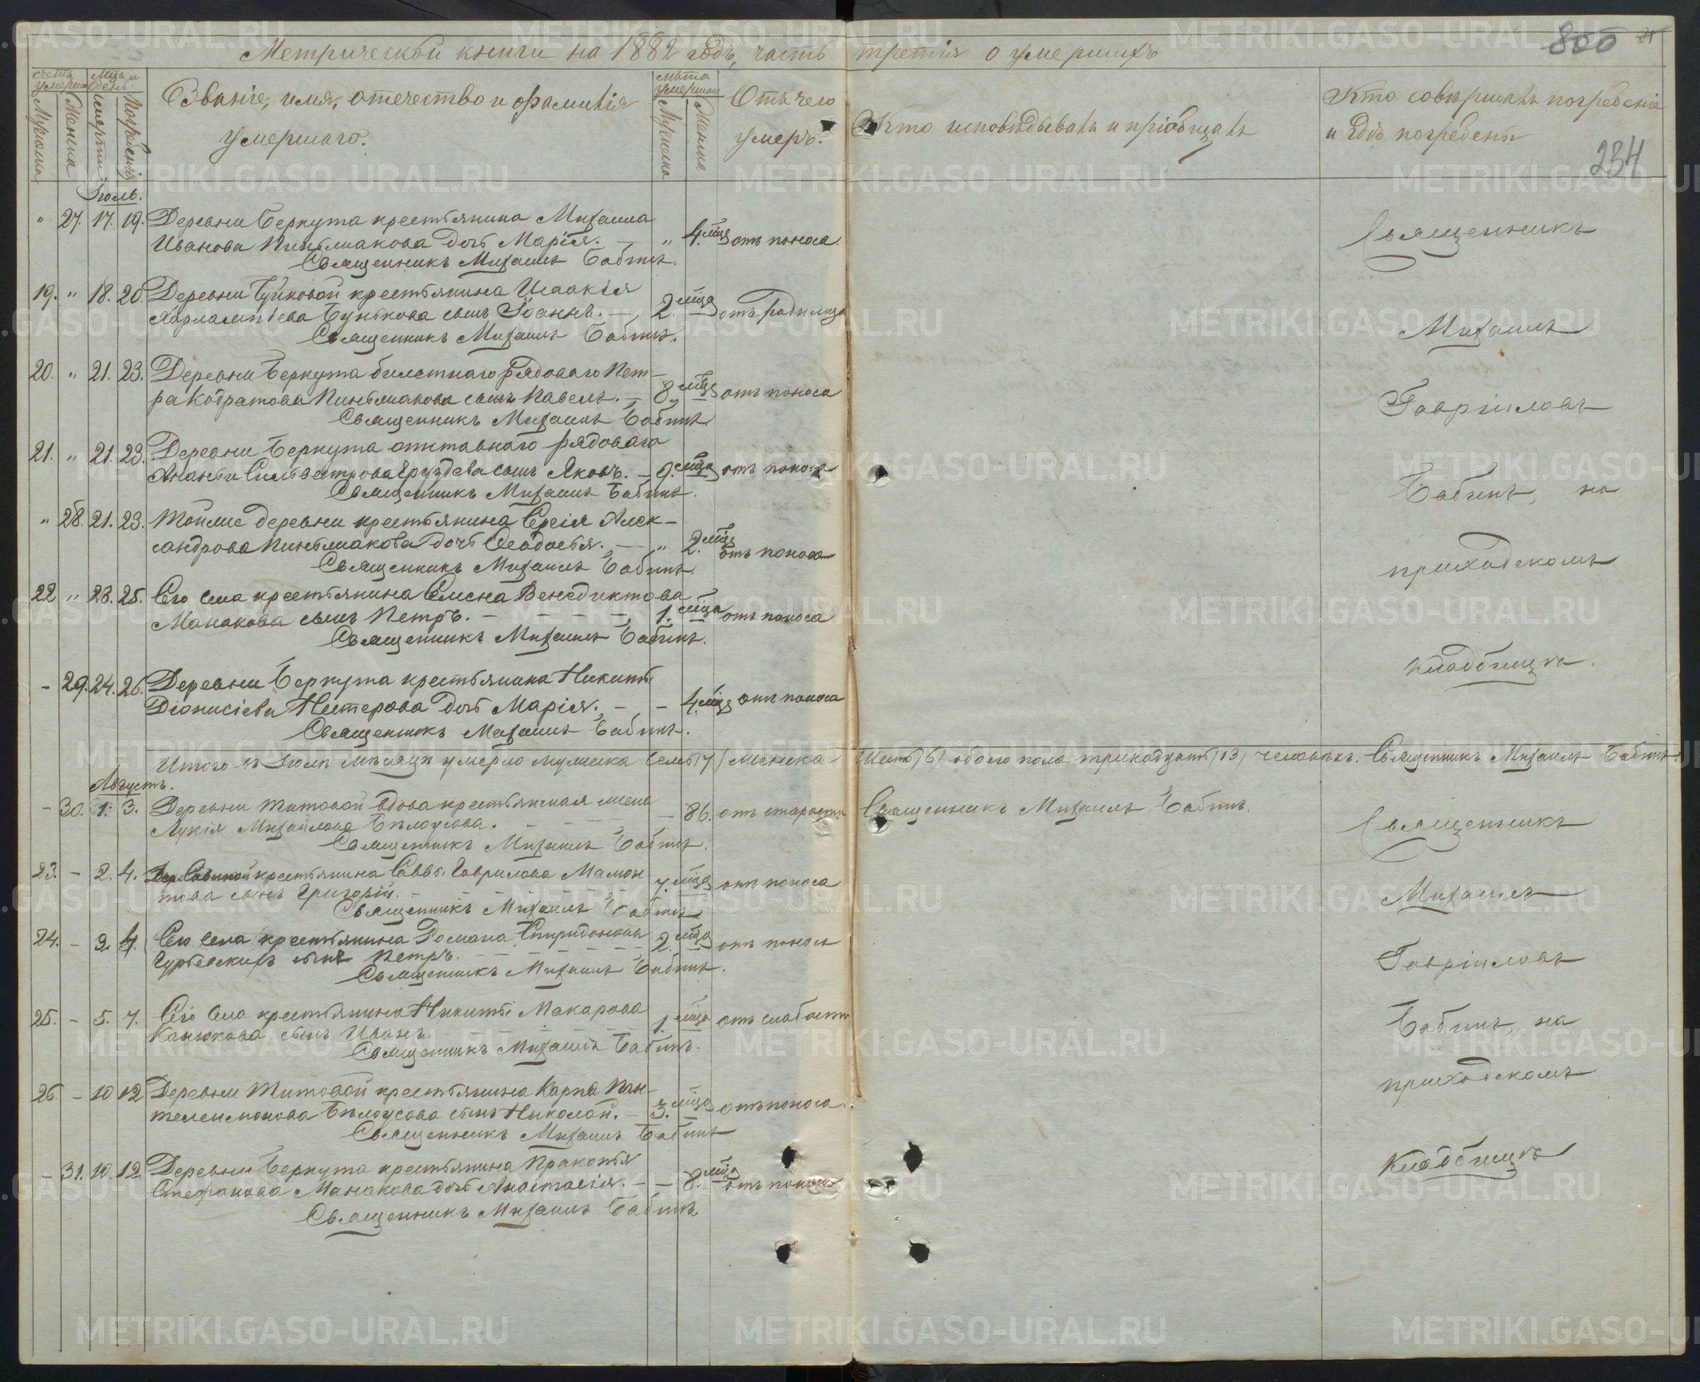 Метрической книги на 1882 годъ, часть третія о умершихъ
800
234
счетъ умершихъ
Мужеска
Женска
Мѣсяцъ и день
смерти
погребенія
Званіе, имя, отечество и фамилія
умершаго.
лѣта умершаго
Мужеска
Женска
Отъ чего
умеръ.
Кто исповѣдывалъ и пріобщалъ
Кто совершалъ погребеніе
и гдѣ погребенъ
Іюль.
" 27. 17. 19. Деревни Беркута крестьянина Михаила
Иванова Пиньжакова дочь Марія. — " 4. мѣся отъ поноса
Священникъ Михаилъ Бабинъ.
19. " 18. 20. Деревни Буньковой крестьянина Исаакія
Харлампіева Бунькова сынъ Іоаннъ. — 2. мѣсяца отъ родимца
Священникъ Михаилъ Бабинъ.
20. " 21. 23. Деревни Беркута билетнаго рядоваго Пет-
ра Кодратова Пиньжакова сынъ Павелъ. — 8. мѣся отъ поноса
Священникъ Михаилъ Бабинъ
21. " 21. 23. Деревни Беркута отставнаго рядоваго
Силвестрова Груздева сынъ Яковъ. — 9. мѣсяца отъ поноса
Священникъ Михаилъ Бабинъ.
" 28. 21. 23. Тойже деревни крестьянина Сергія Алек-
сандрова Пиньжакова дочь Феодосья. — " 2. мѣся отъ поноса
Священникъ Михаилъ Бабинъ
22 " 23. 25. Сего села крестьянина Венедиктова
Манакова сынъ Петръ. — 1. мѣсяца отъ поноса
Священникъ Михаилъ Бабинъ.
- 29. 24. 26. Деревни Беркута крестьянина Никиты
Діонисіева Нестерова дочь Марія. — - 4. мѣся отъ поноса
Священникъ Михаилъ Бабинъ.
Священникъ
Михаилъ
Гавріиловъ
Бабинъ, на
приходскомъ
кладбищѣ.
Итого въ Іюлѣ мѣсяцѣ умерло мужеска семь (7) женска шесть (6) обоего пола тринадцать (13) человѣкъ. Священникъ Михаилъ Бабинъ
Августъ.
- 30. 1. 3. Деревни Титовой вдова крестьянская жена
Лукія Михайлова Бѣлоусова. — - 86. отъ старости Священникъ Михаилъ Бабинъ.
Священникъ Михаилъ Бабинъ.
23. - 2. 4. крестьянина Саввы Гаврилова Мамон
това сынъ Григорій. — 7. мѣся отъ поноса
Священникъ Михаилъ Бабинъ
24. - 2. 4. Сего села крестьянина Романа Спиридонова
сынъ Петръ. — 2. мѣся отъ поноса
Священникъ Михаилъ Бабинъ.
25. - 5. 7. Сего села крестьянина Никиты Макарова
Канюкова сынъ Иванъ. — 1. мѣсяца отъ слабости
Священникъ Михаилъ Бабинъ.
26 - 10 12 Деревни Титовой крестьянина Карпа Пан-
телеимонова Бѣлоусова сынъ Николай. — 3. мѣсяца отъ поноса.
Священникъ Михаилъ Бабинъ
- 31. 10. 12. Деревни Беркута крестьянина Пракопья
Стефанова Манакова дочь Анастасія. — - 8. мѣсяца отъ поноса
Священникъ Михаилъ Бабинъ
Священникъ
Михаилъ
Гавріиловъ
Бабинъ, на
приходскомъ
кладбищѣ
METRIKI.GASO-URAL.RU